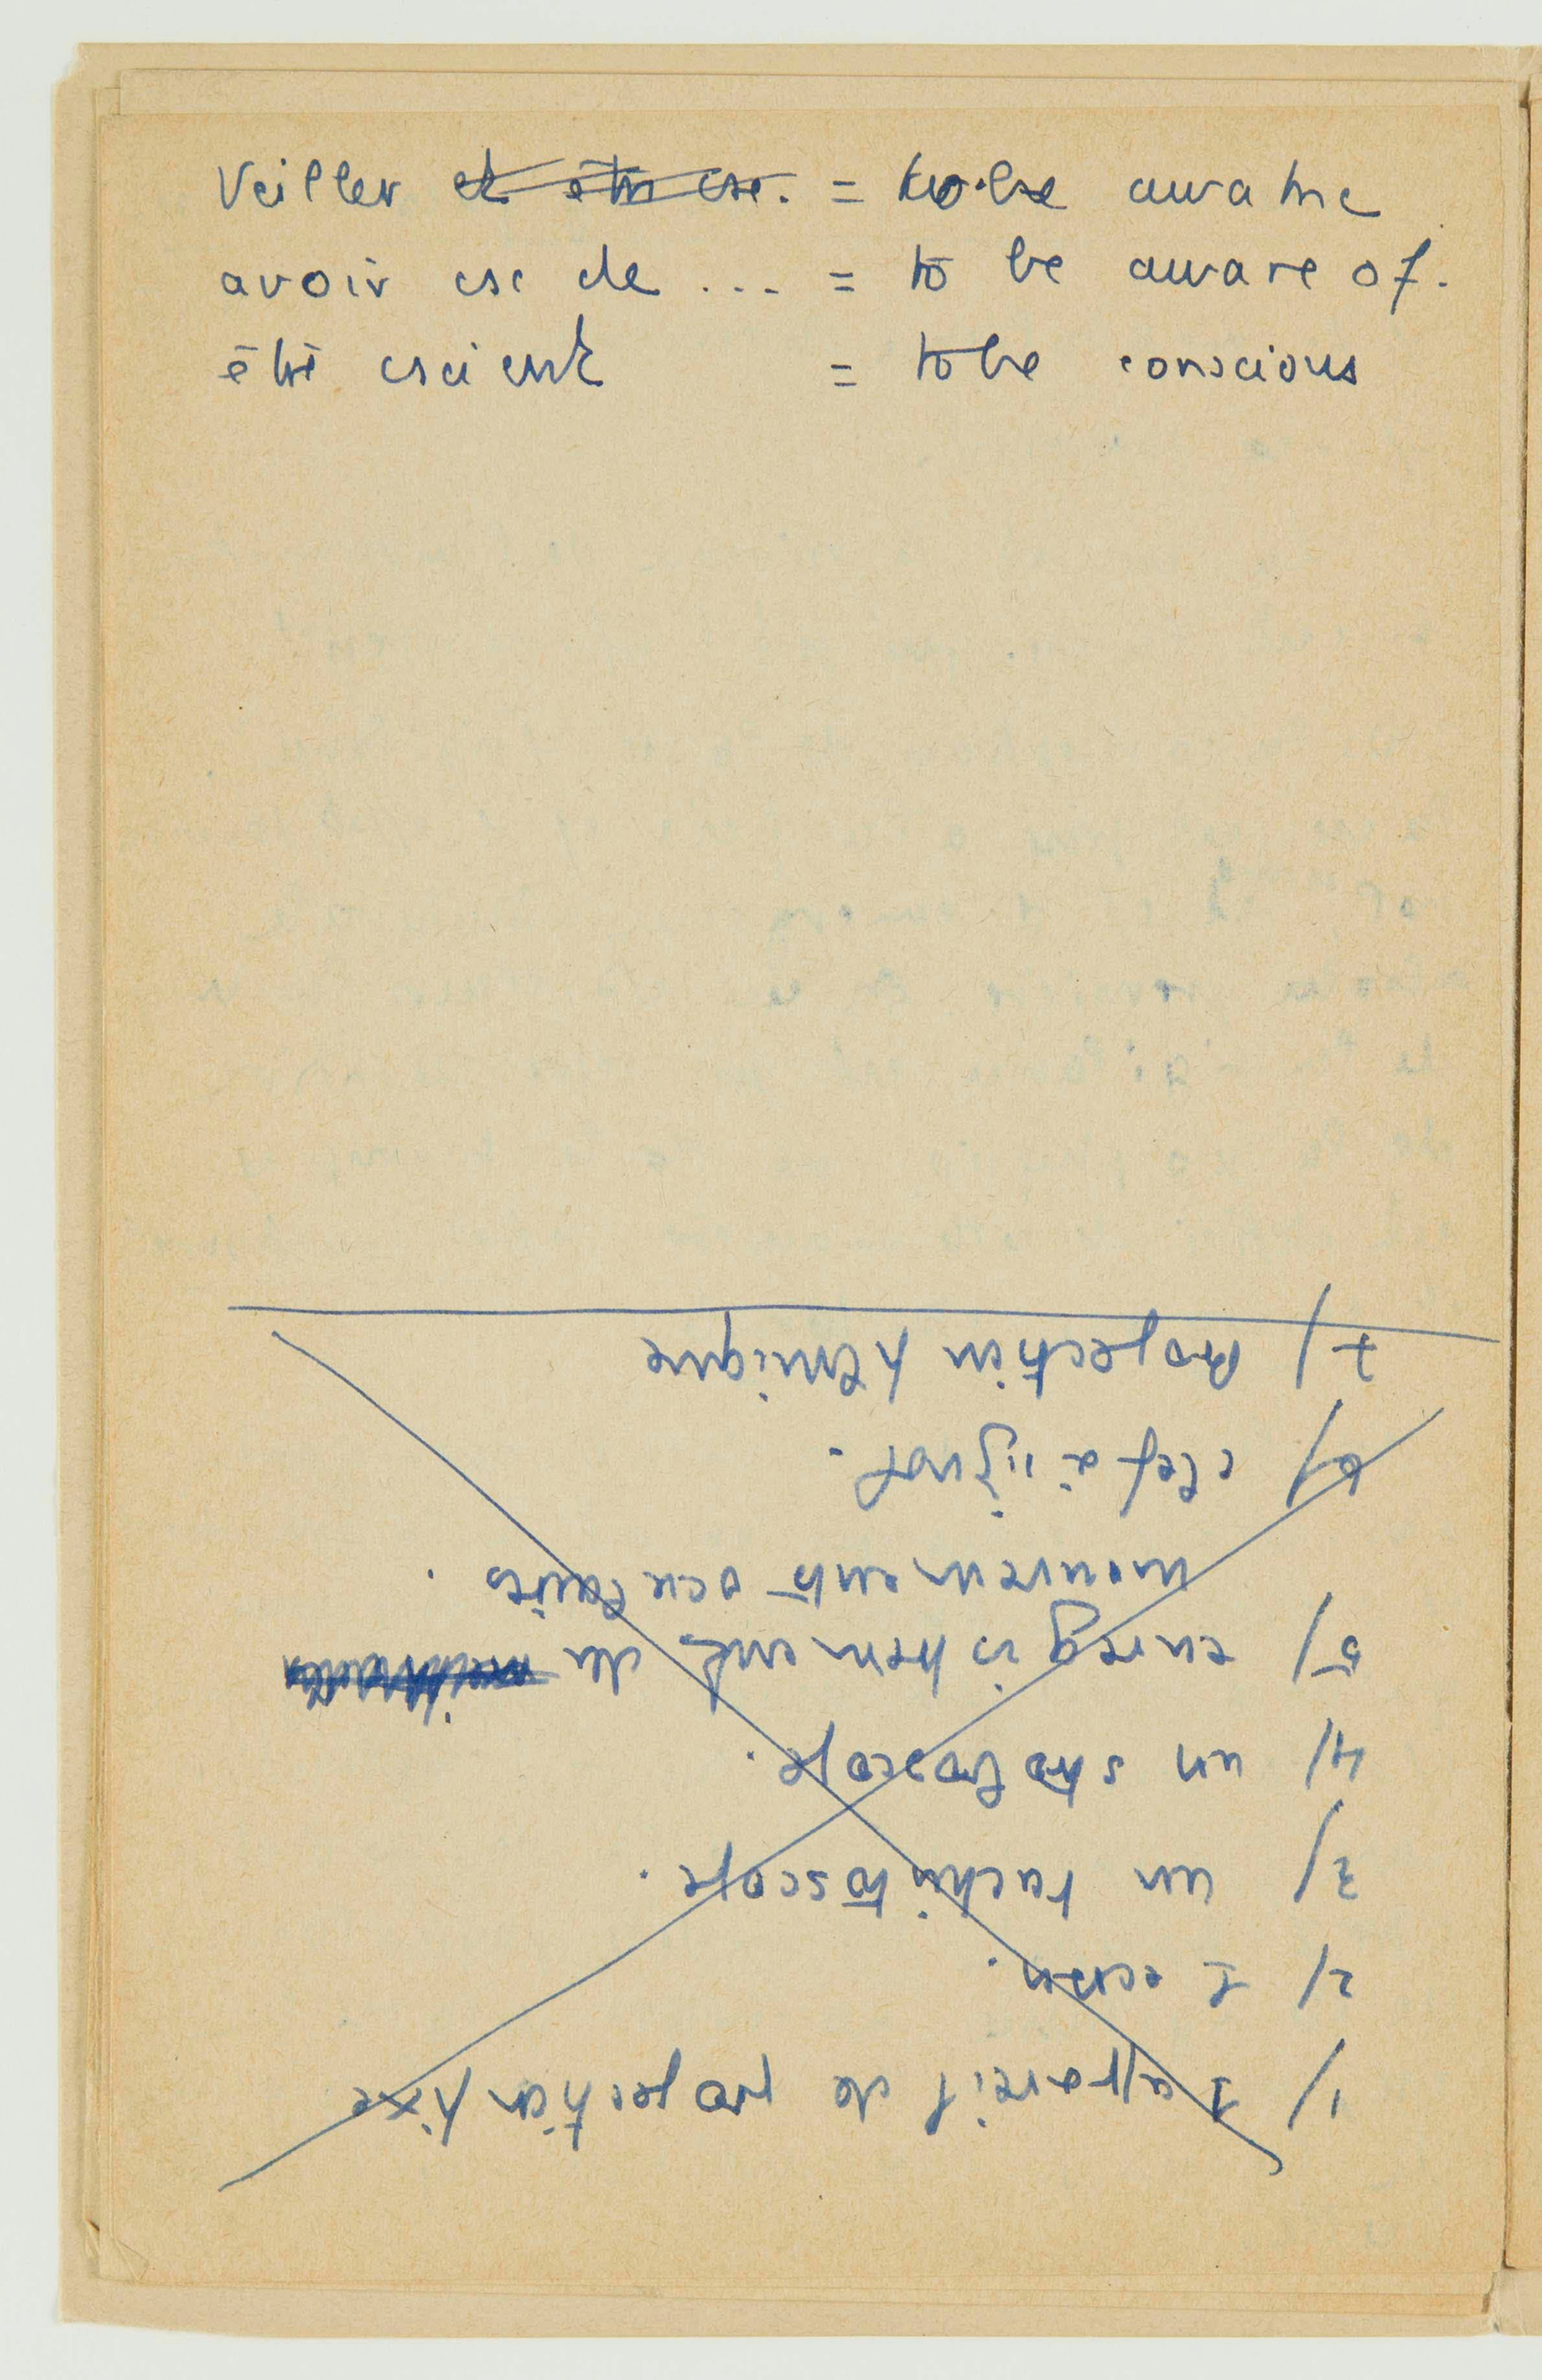 Veiller et être csc. = to be awake
avoir csc de ... = to be aware of.
être cscient = to be conscious
1) 1 appareil de projection fixe
2) 1 écran.
3) un tachistoscope.
4) un stroboscope.
5) enregistrement des
mouvements oculaires.
6) clef à
7) Projection